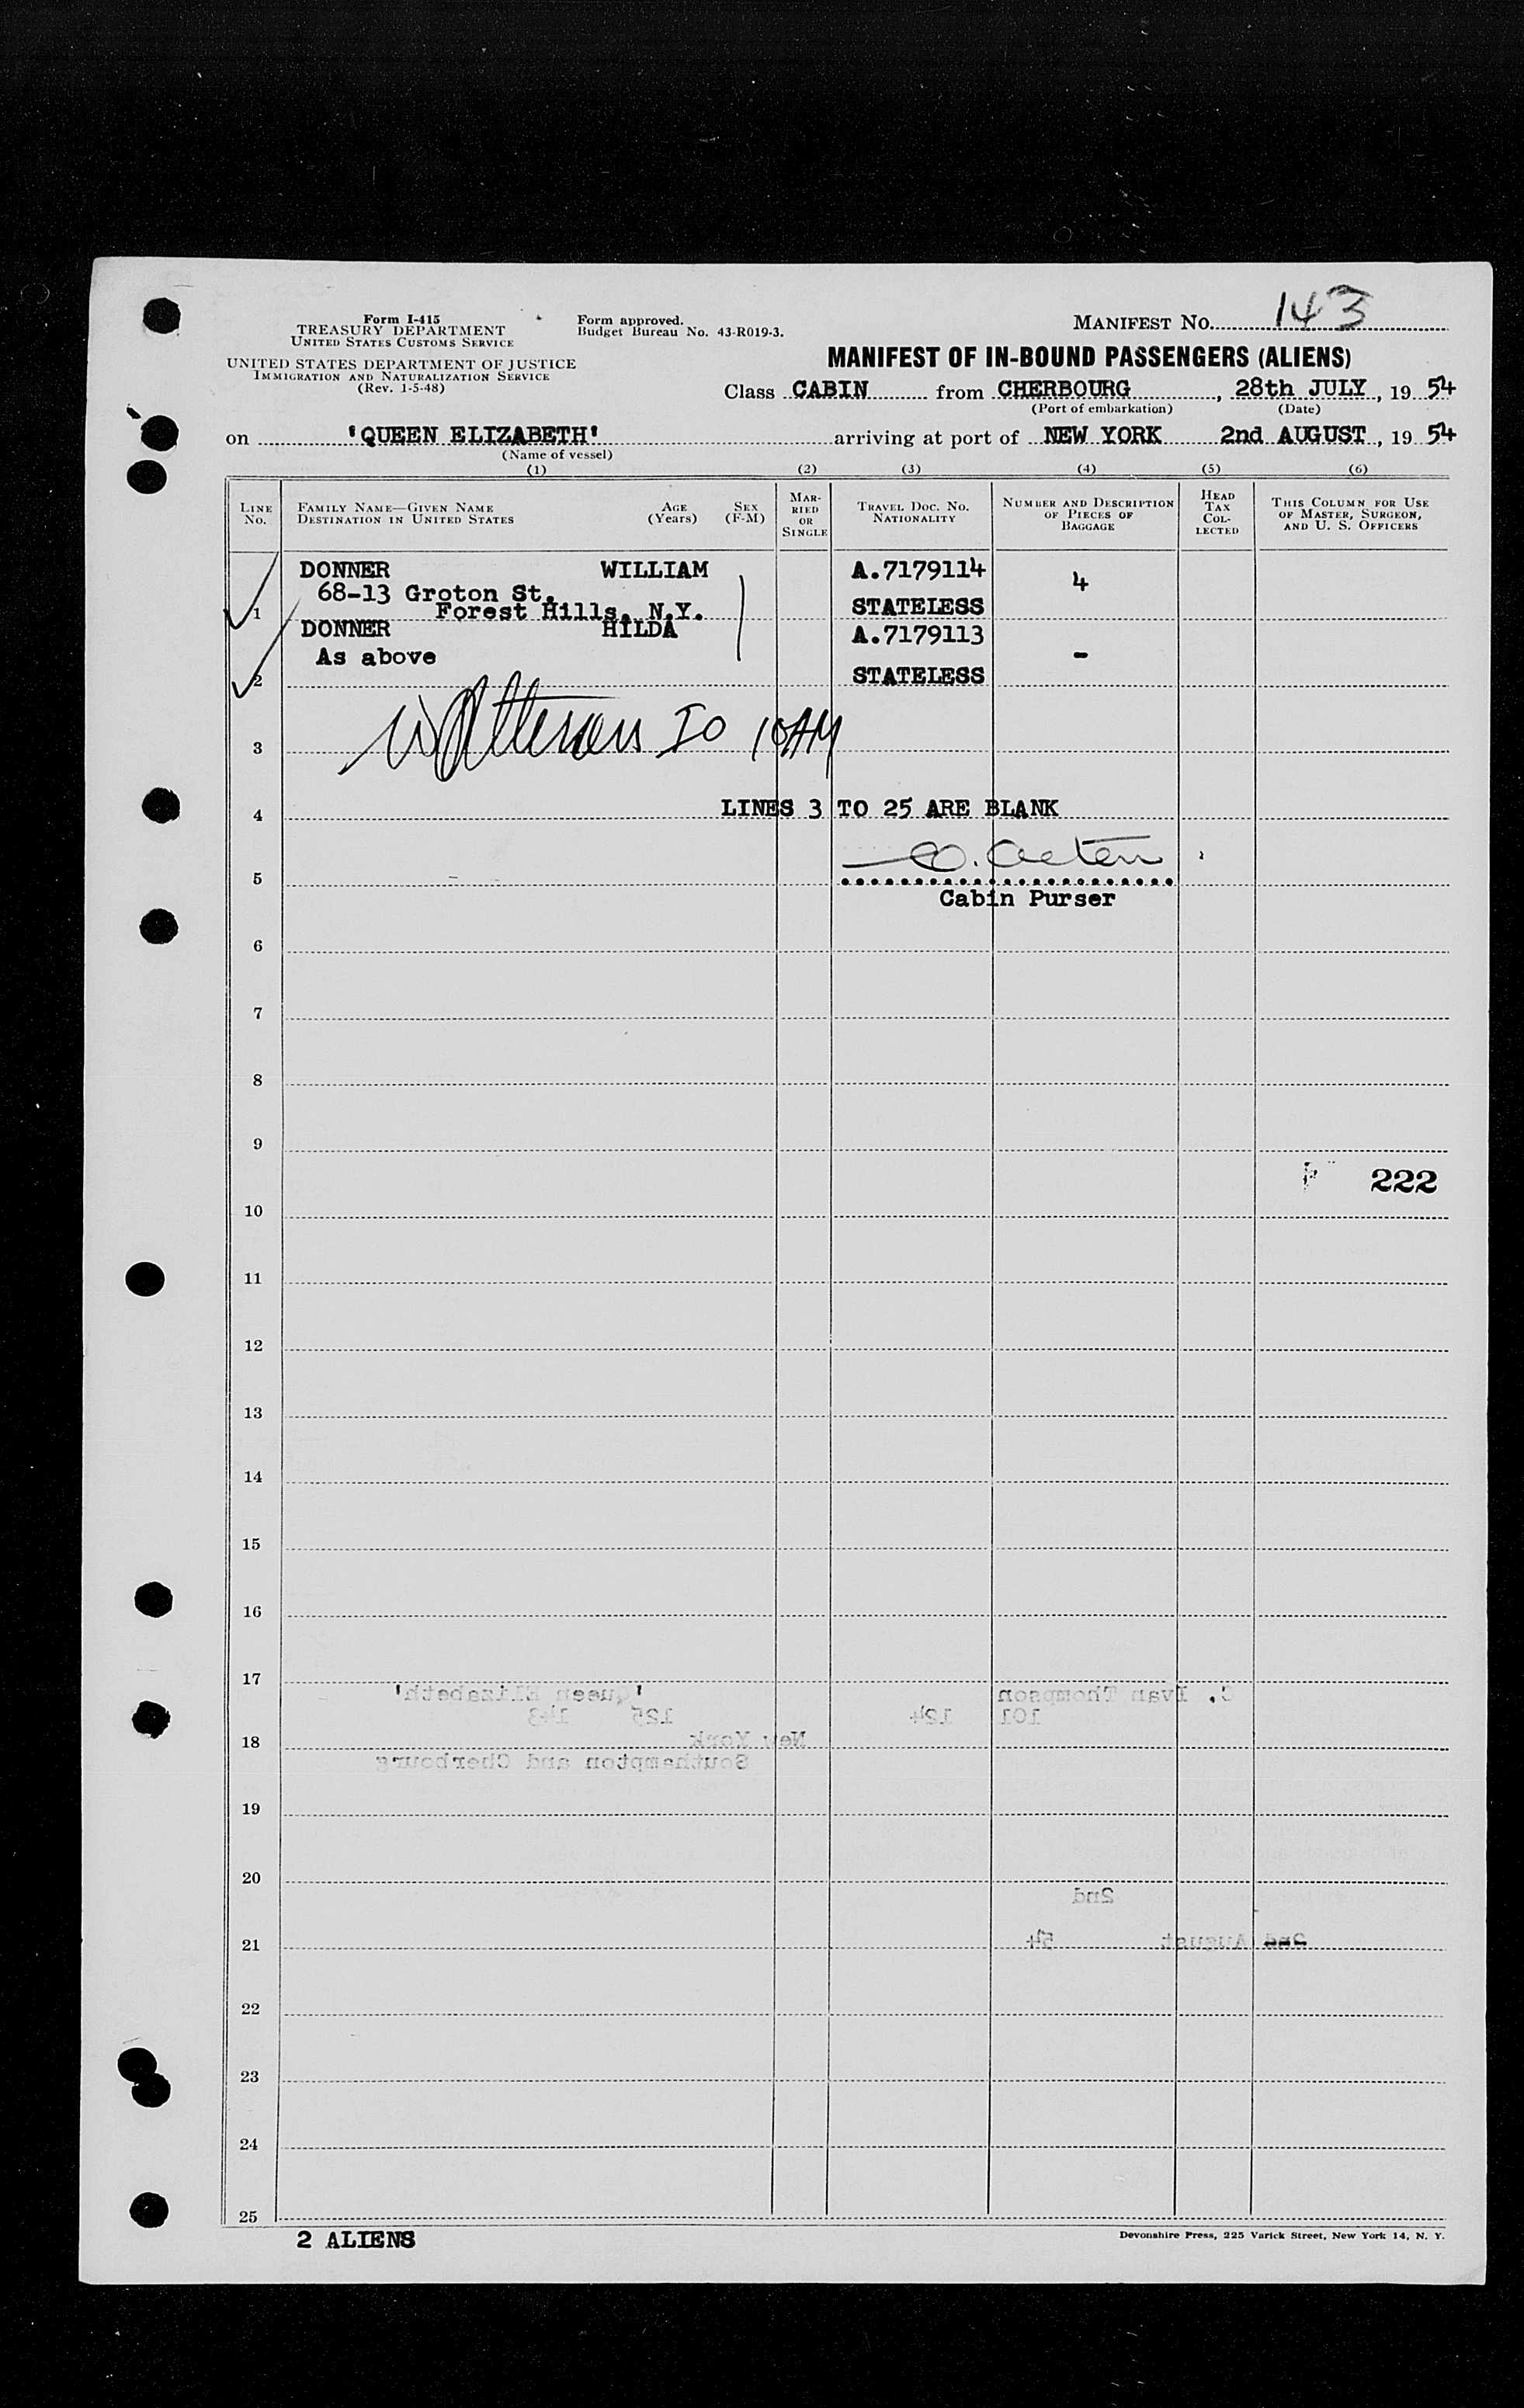 Form I-415
TREASURY DEPARTMENT
UNITED STATES CUSTOMS SERVICE
UNITED STATES DEPARTMENT OF JUSTICE
IMMIGRATION AND NATURALIZATION SERVICE
(Rev. 1-5-48)
Form approved.
Budget Bureau No. 43-R019-3.
MANIFEST NO. 143
MANIFEST OF IN-BOUND PASSENGERS (ALIENS)
Class CABIN from CHERBOURG, 28th JULY, 1954
(Port of embarkation) (Date)
on 'QUEEN ELIZABETH' arriving at port of NEW YORK 2nd AUGUST, 1954
(Name of vessel)
(1) (2) (3) (4) (5) (6)
LINE NO.
FAMILY NAME—GIVEN NAME
DESTINATION IN UNITED STATES
AGE (Years)
SEX (F-M)
MARRIED OR SINGLE
TRAVEL DOC. NO. NATIONALITY
NUMBER AND DESCRIPTION OF PIECES OF BAGGAGE
HEAD TAX COLLECTED
THIS COLUMN FOR USE OF MASTER, SURGEON, AND U. S. OFFICERS
DONNER WILLIAM A.7179114 4
68-13 Groton St.
1 Forest Hills, N.Y. STATELESS
DONNER HILDA A.7179113
As above -
2 STATELESS
IO 10AM
3
4 LINES 3 TO 25 ARE BLANK
5
Cabin Purser
6
7
8
9
222
10
11
12
13
14
15
16
17
'Queen Elizabeth' C. Ivan Thompson
125 143 124 101
18 New York
Southampton and Cherbourg
19
20
2nd
21 2nd August 54
22
23
24
25
2 ALIENS
Devonshire Press, 225 Varick Street, New York 14, N. Y.